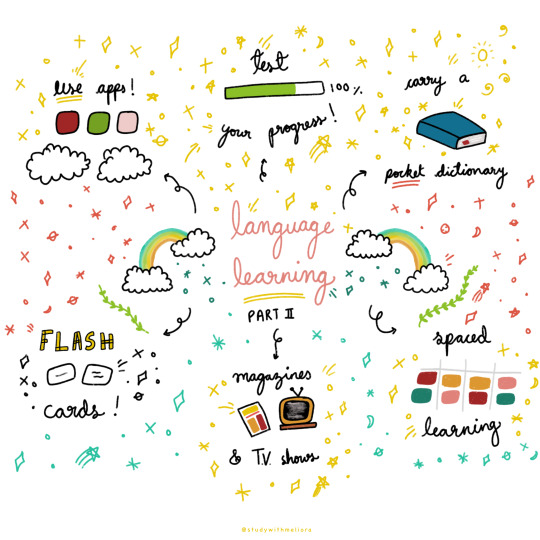 use apps!
test
100%
your progress!
carry a
pocket dictionary
language
learning
PART II
FLASH
cards!
magazines
& T.V. shows
spaced
learning
@studywithmaliara